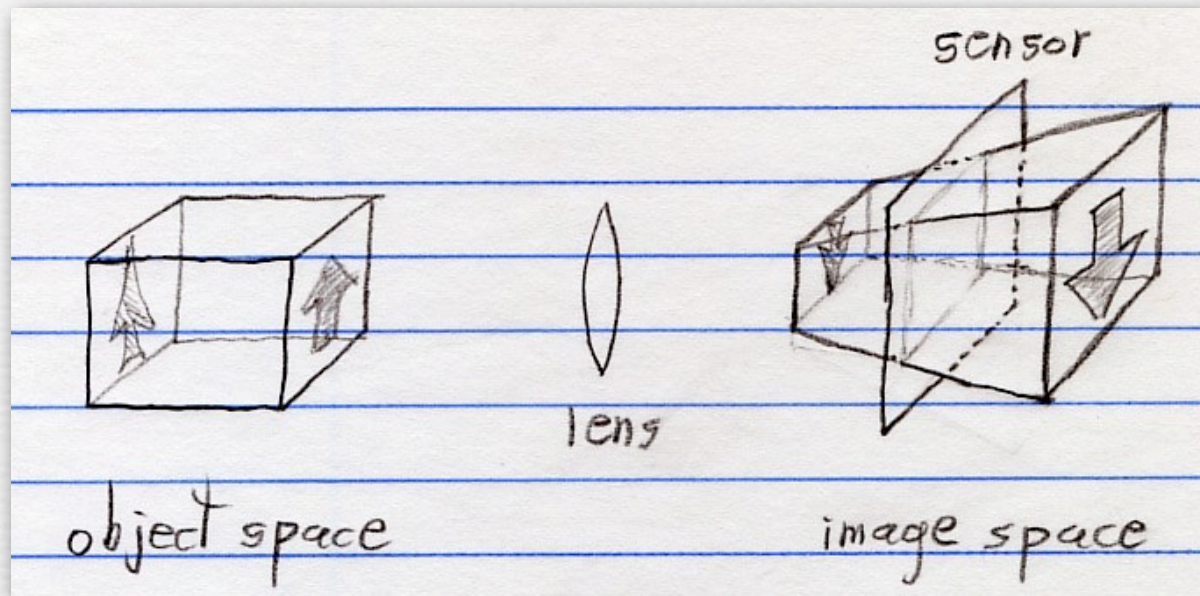 sensor
lens
object space
image space